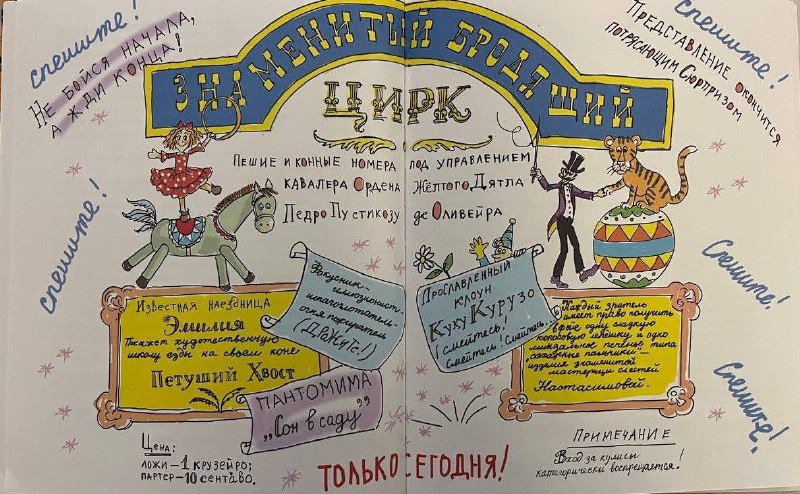 Спешите!
Не бойся начала,
а жди конца!
Знаменитый бродящий
цирк
Спешите!
Представление окончится
потрясающим сюрпризом
Пешие и конные номера под управлением
кавалера Ордена Жёлтого Дятла
Педро Пустикозу де Оливейра
Спешите!
Спешите!
Спешите!
Известная наездница
Эмилия
Покажет художественную
школу езды на своем коне
Петуший Хвост
Фокусник-
иллюзионист-
шпагоглотатель-
огня пожиратель
(Дрожите!)
Прославленный
клоун
Куку Курузо
(смейтесь!
Смейтесь! Смейтесь!)
Каждый зритель
имеет право получить
одну сладкую
кокосовую лепешку и одно
миндальное печенье типа
"загадные пальчики" —
изделия знаменитой
мастерицы сластей
Настасимовой.
Пантомима
„Сон в саду"
Цена:
ложи — 1 крузейро;
партер — 10 сентаво.
Только сегодня!
Примечание
Вход за кулисы
категорически воспрещается!